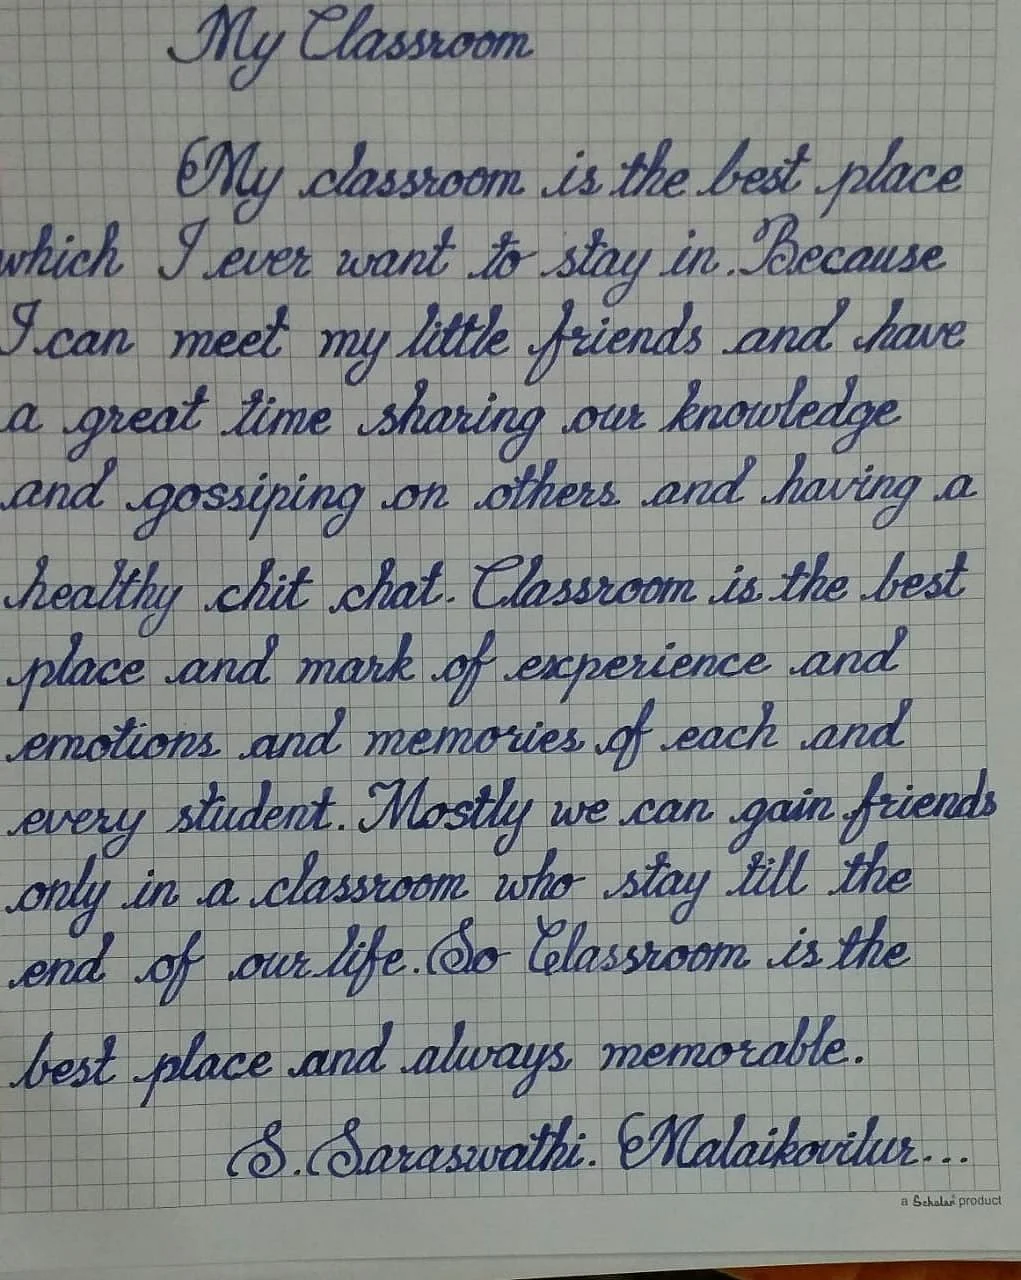 My Classroom
My classroom is the best place
which I ever want to stay in. Because
I can meet my little friends and have
a great time sharing our knowledge
and gossiping on others and having a
healthy chit chat. Classroom is the best
place and mark of experience and
emotions and memories of each and
every student. Mostly we can gain friends
only in a classroom who stay till the
end of our life. So Classroom is the
best place and always memorable.
S. Saraswathi. Malaikovilur...
a Scholar product